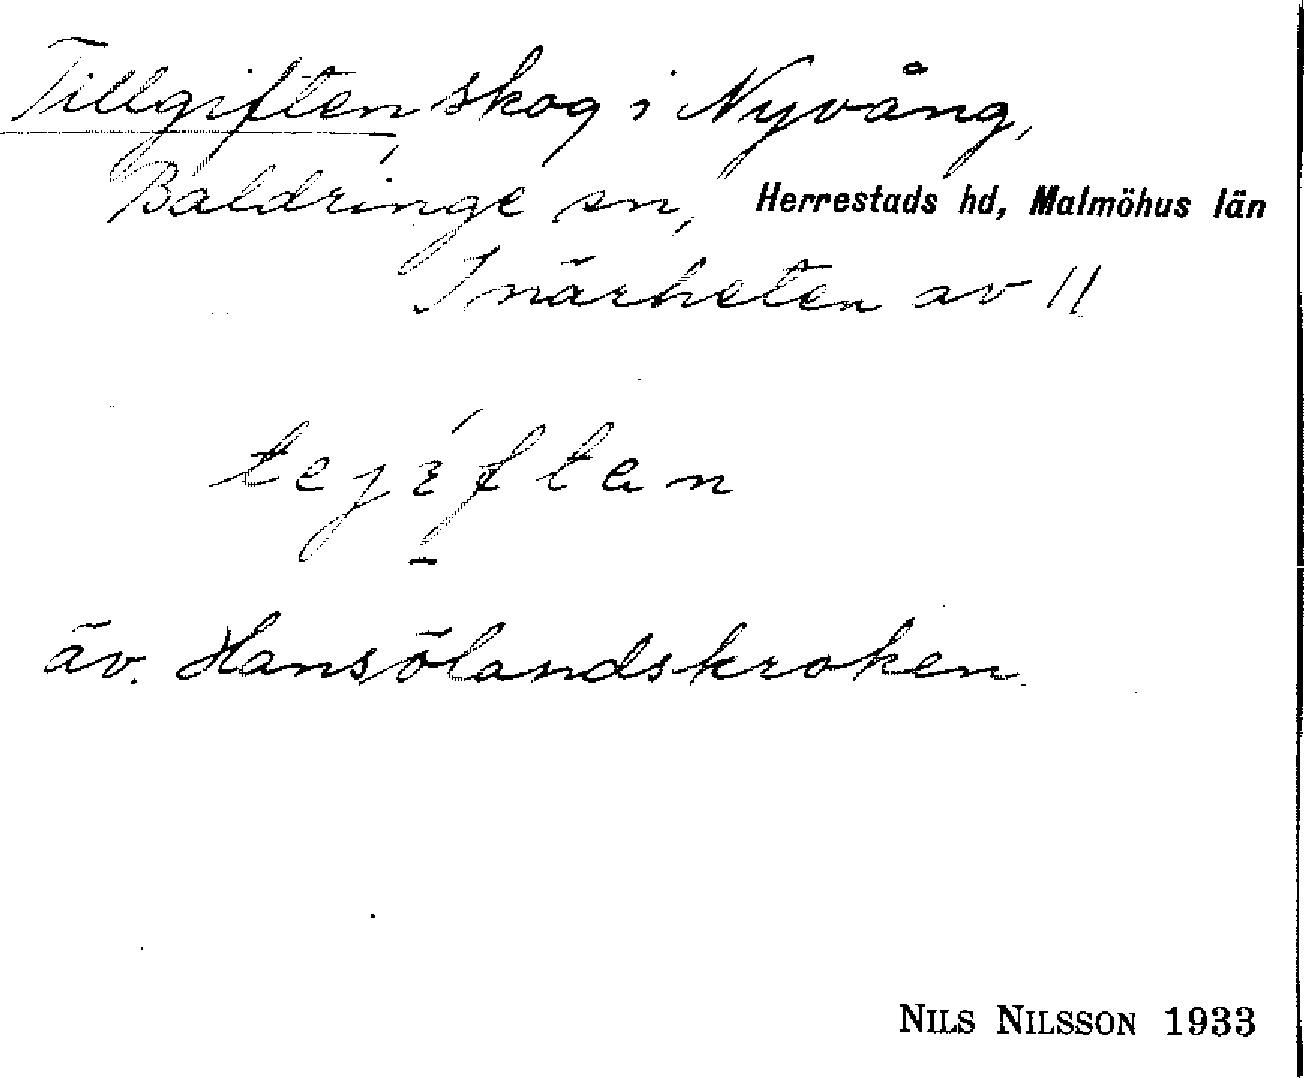 Tillgiften, skog i Nyvång,
Baldringe sn, Herrestads hd, Malmöhus län
I närheten av 11
tejíftan
äv. Hansölandskroken
NILS NILSSON 1933